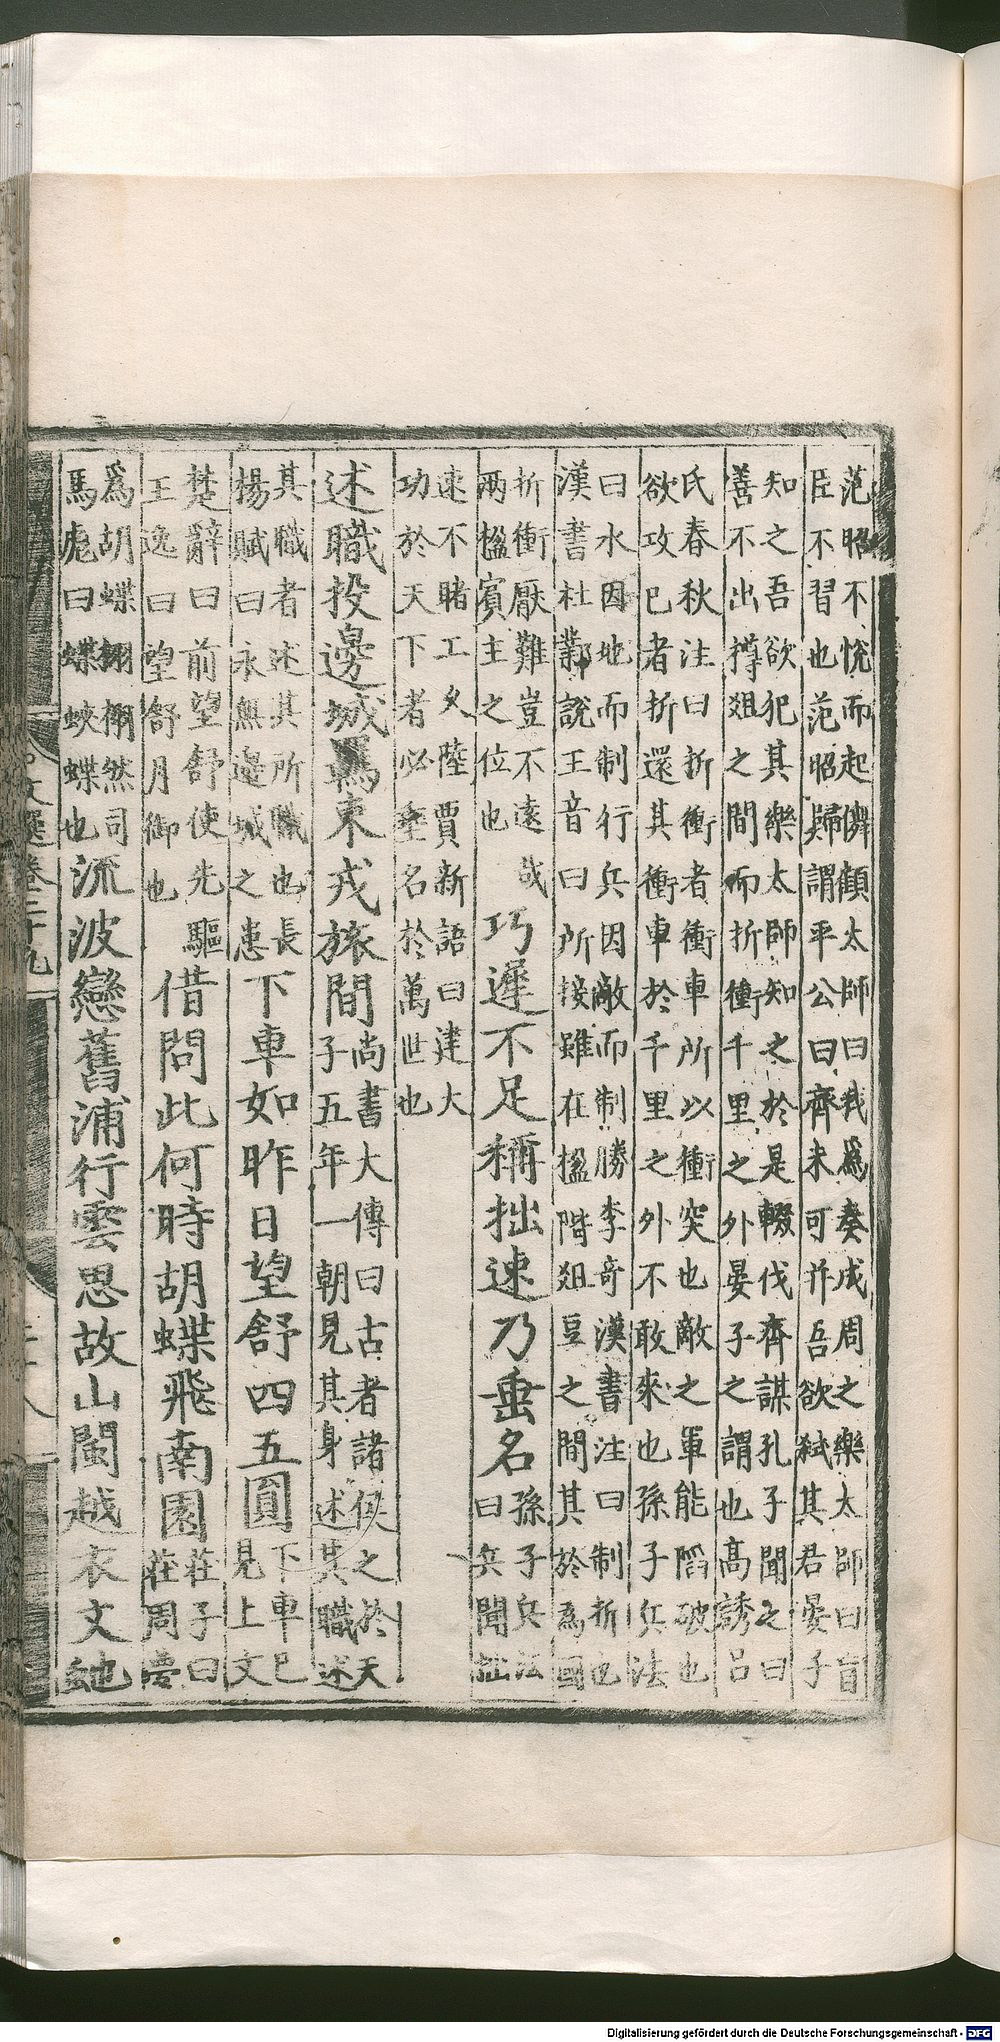 范昭不悅而起儛顧太師曰我爲奏成周之樂太師曰盲
臣不習也范昭歸謂平公曰齊未可并吾欲弒其君晏子
知之吾欲犯其樂太師知之於是輟伐齊謀孔子聞之曰
善不出樽俎之間而折衝千里之外晏子之謂也高誘呂
氏春秋注曰折衝者衝車所以衝突也敵之軍能陷破也
欲攻已者折還其衝車於千里之外不敢來也孫子兵法
曰水因地而制行兵因敵而制勝李奇漢書注曰制折也
漢書杜鄴說王音曰所接雖在楹階俎豆之間其於為國
折衝厭難豈不遠哉
兩楹賓主之位也
巧遲不足稱拙速乃垂名
孫子兵法
曰兵聞拙
速不睹工久陸賈新語曰建大
功於天下者必垂名於萬世也
述職投邊城羈束戎旅間
尚書大傳曰古者諸侯之於天
子五年一朝見其身述其職述
其職者述其所職也長
楊賦曰永無邊城之患
下車如昨日望舒四五圓
下車已
見上文
楚辭曰前望舒使先驅
王逸曰望舒月御也
借問此何時胡蝶飛南園
莊子曰
莊周夢
爲胡蝶栩栩然司
馬彪曰蝶蛺蝶也
流波戀舊浦行雲思故山閩越衣文虵
文選卷二十九
二十八
Digitalisierung gefördert durch die Deutsche Forschungsgemeinschaft - DFG